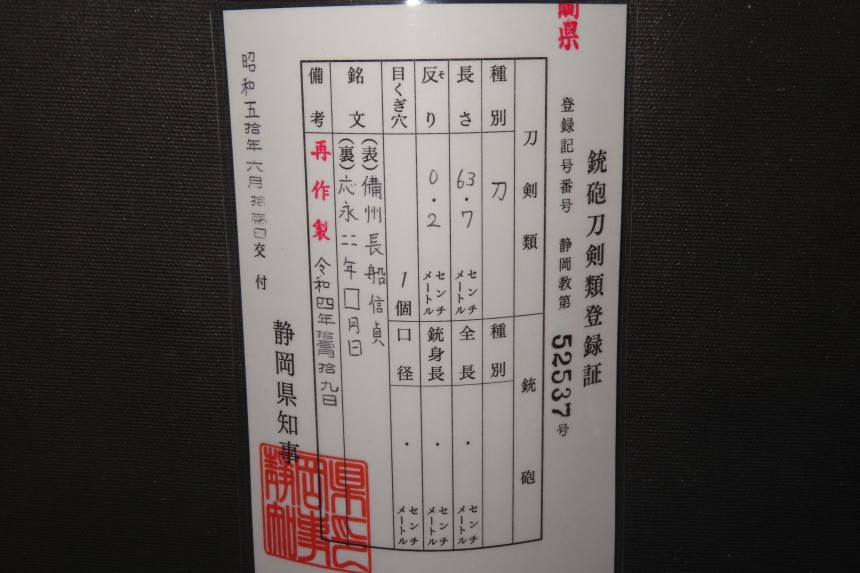 県
銃砲刀剣類登録証
登録記号番号 静岡教第 52537 号
刀剣類 銃砲
種別 刀 種別
長さ 63.7 センチメートル 全長 ・ センチメートル
反り 0.2 センチメートル 銃身長 ・ センチメートル
目くぎ穴 1個 口径 ・ センチメートル
銘文 (表)備州長船信貞
(裏)応永二二年□月日
備考 再作製 令和四年 九日
昭和五拾年六月 日交付
静岡県知事